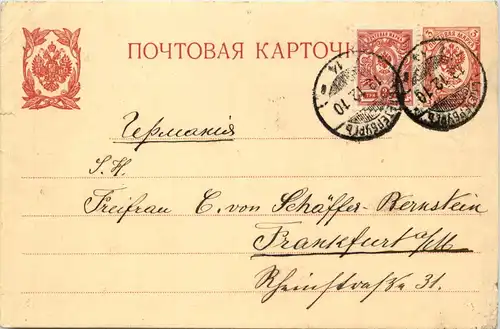 ПОЧТОВАЯ КАРТОЧК
14
12.10
12.10
Германія
S. H.
Freifrau C. von Schäffer-Bernstein
Frankfurt a/M
Rheinstraße 31.